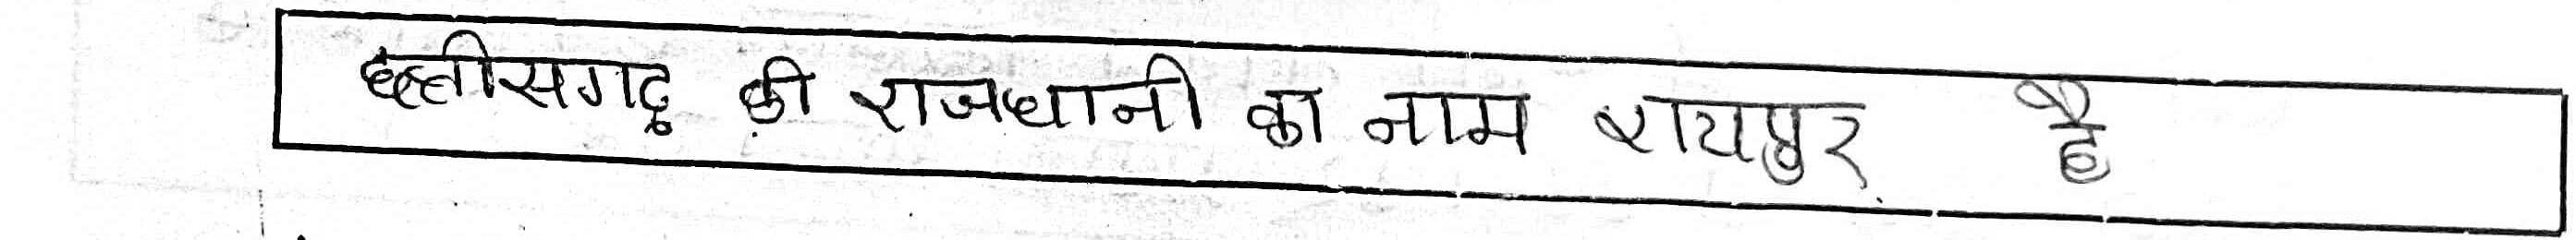 छत्तीसगढ़ की राजधानी का नाम रायपुर है